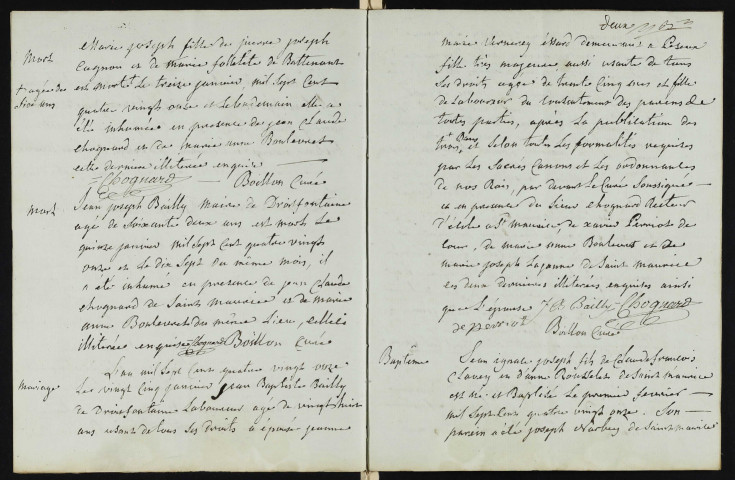 Mort
+ agée de
dix ans
Marie Joseph fille de pierre joseph
Cugnon et de marie follelete de Battenant
est morte Le treize janvier mil sept cent
quatre vingt onze et Lelendemain elle a
été inhumée en presence de jean Claude
Chognard et de marie anne Boulevret
cette derniere illiterée enquise
Chognard Boillon Curé
Mort
Jean joseph Bailly maire de Droitfontaine
age de soixante deux ans est mort Le
quinze janvier mil sept cent quatre vingt
onze et Le dix sept du même mois, il
a été inhumé en presence de jean Claude
chognard de Saint maurice et de marie
anne Boulevret du même Lieu, elle
illiterée enquise Chognard Boillon Curé
Mariage
L'an mil sept cent quatre vingt onze
Le vingt cinq janvier jean Baptiste Bailly
de Droitfontaine Laboureur agé de vingt huit
ans usant de tous ses droits a épousé jeanne
deux
marie demeurant a
fille tres majeure aussi usante de tous
ses droits agée de trente cinq ans et fille
de Laboureur du Consentement des parens de
toutes parties, après La publication des
trois Bans, et selon toutes Les formalités requises
par Les Sacrés Canons et Les ordonnances
de nos Rois, par devant Le Curé Soussigné
et en presence du Sieur chognard Recteur
d'école a St maurice, de xavier perriot de
Cour, de marie anne Boulevret et de
marie joseph de Saint maurice
Les deux dernieres illiterées enquises ainsi
que L'épouse J B Bailly Chognard
Boillon Curé
Baptême
Jean ignace joseph fils de Claude françois
et d'anne de Saint maurice
est né et Baptisé Le premier fevrier
mil sept cent quatre vingt onze. Son
parein a été joseph de Saint maurice